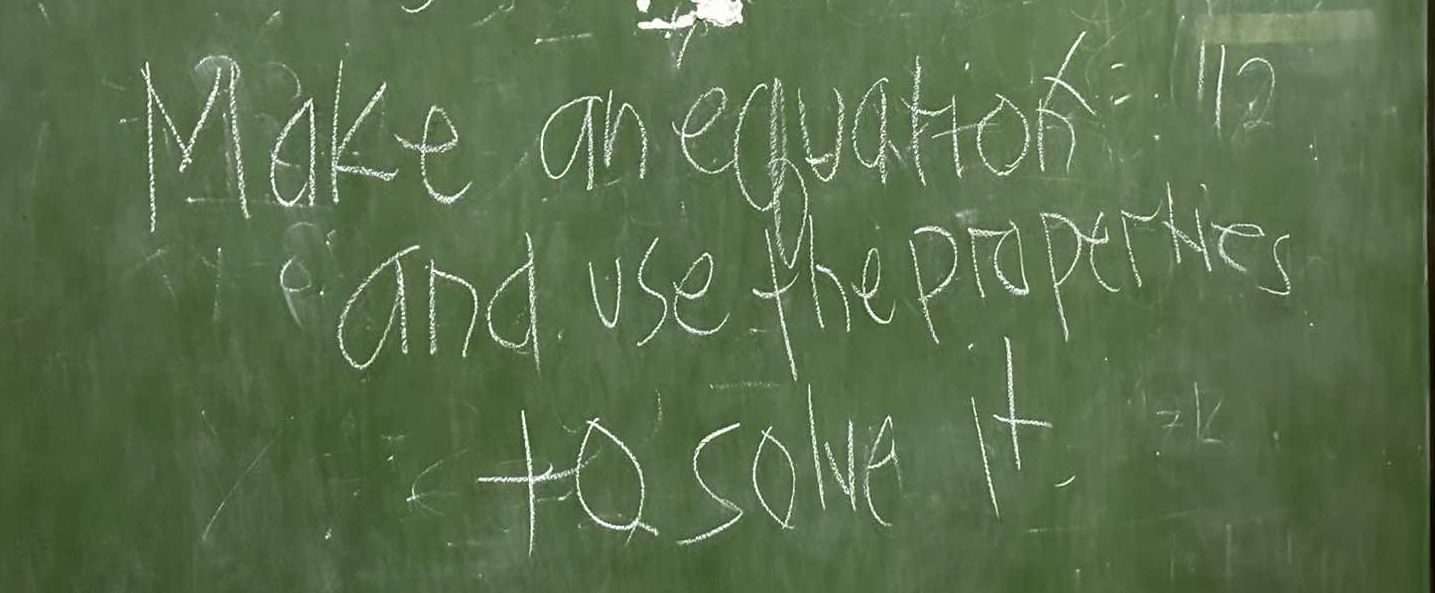 Make an equation = 12
and use the properties
to solve it.